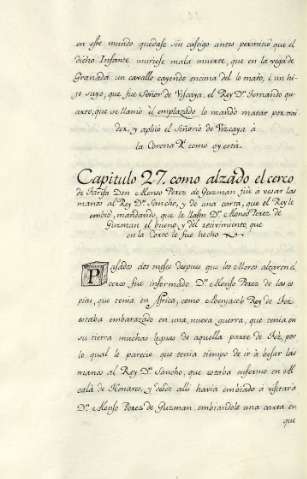 en este mundo quedase sin castigo antes permitió que el
dicho Infante muriese mala muerte, que en la vega de
Granada un cavallo cayendo encima del lo mató, i un hi-
jo suyo, que fue Señor de Viscaya, el Rey Dn. Fernando qu-
arto, que se llamó el emplazado lo mandó matar por trai-
dor, y aplicó el Señorio de Viscaya á
la Corona Rl. como oy está.
Capitulo 27. como alzado el cerco
de Tarifa Don Alonso Perez de Guzman fué à besar las
manos al Rey Dn. Sancho, y de una carta, que el Rey le
embió, mandando, que le llamen Dn. Alonso Perez de
Guzman el bueno, y del recivimiento, que
en la Corte le fue hecho
Pasados dos meses despues que los Moros alzaron el
cerco fue informado Dn. Alonso Perez de las es-
pias, que tenia en Africa, como Abenjacob Rey de Fez
estaba embarazado en una nueva guerra, que tenia en
su tierra muchas leguas de aquella parte de Fez, por
lo qual le parecio que tenia tiempo de ir à besar las
manos al Rey Dn. Sancho, que estaba enfermo en Al-
calá de Henares, y desde alli havia embiado à visitar á
Dn. Alonso Perez de Guzman, embiandole una carta en
que